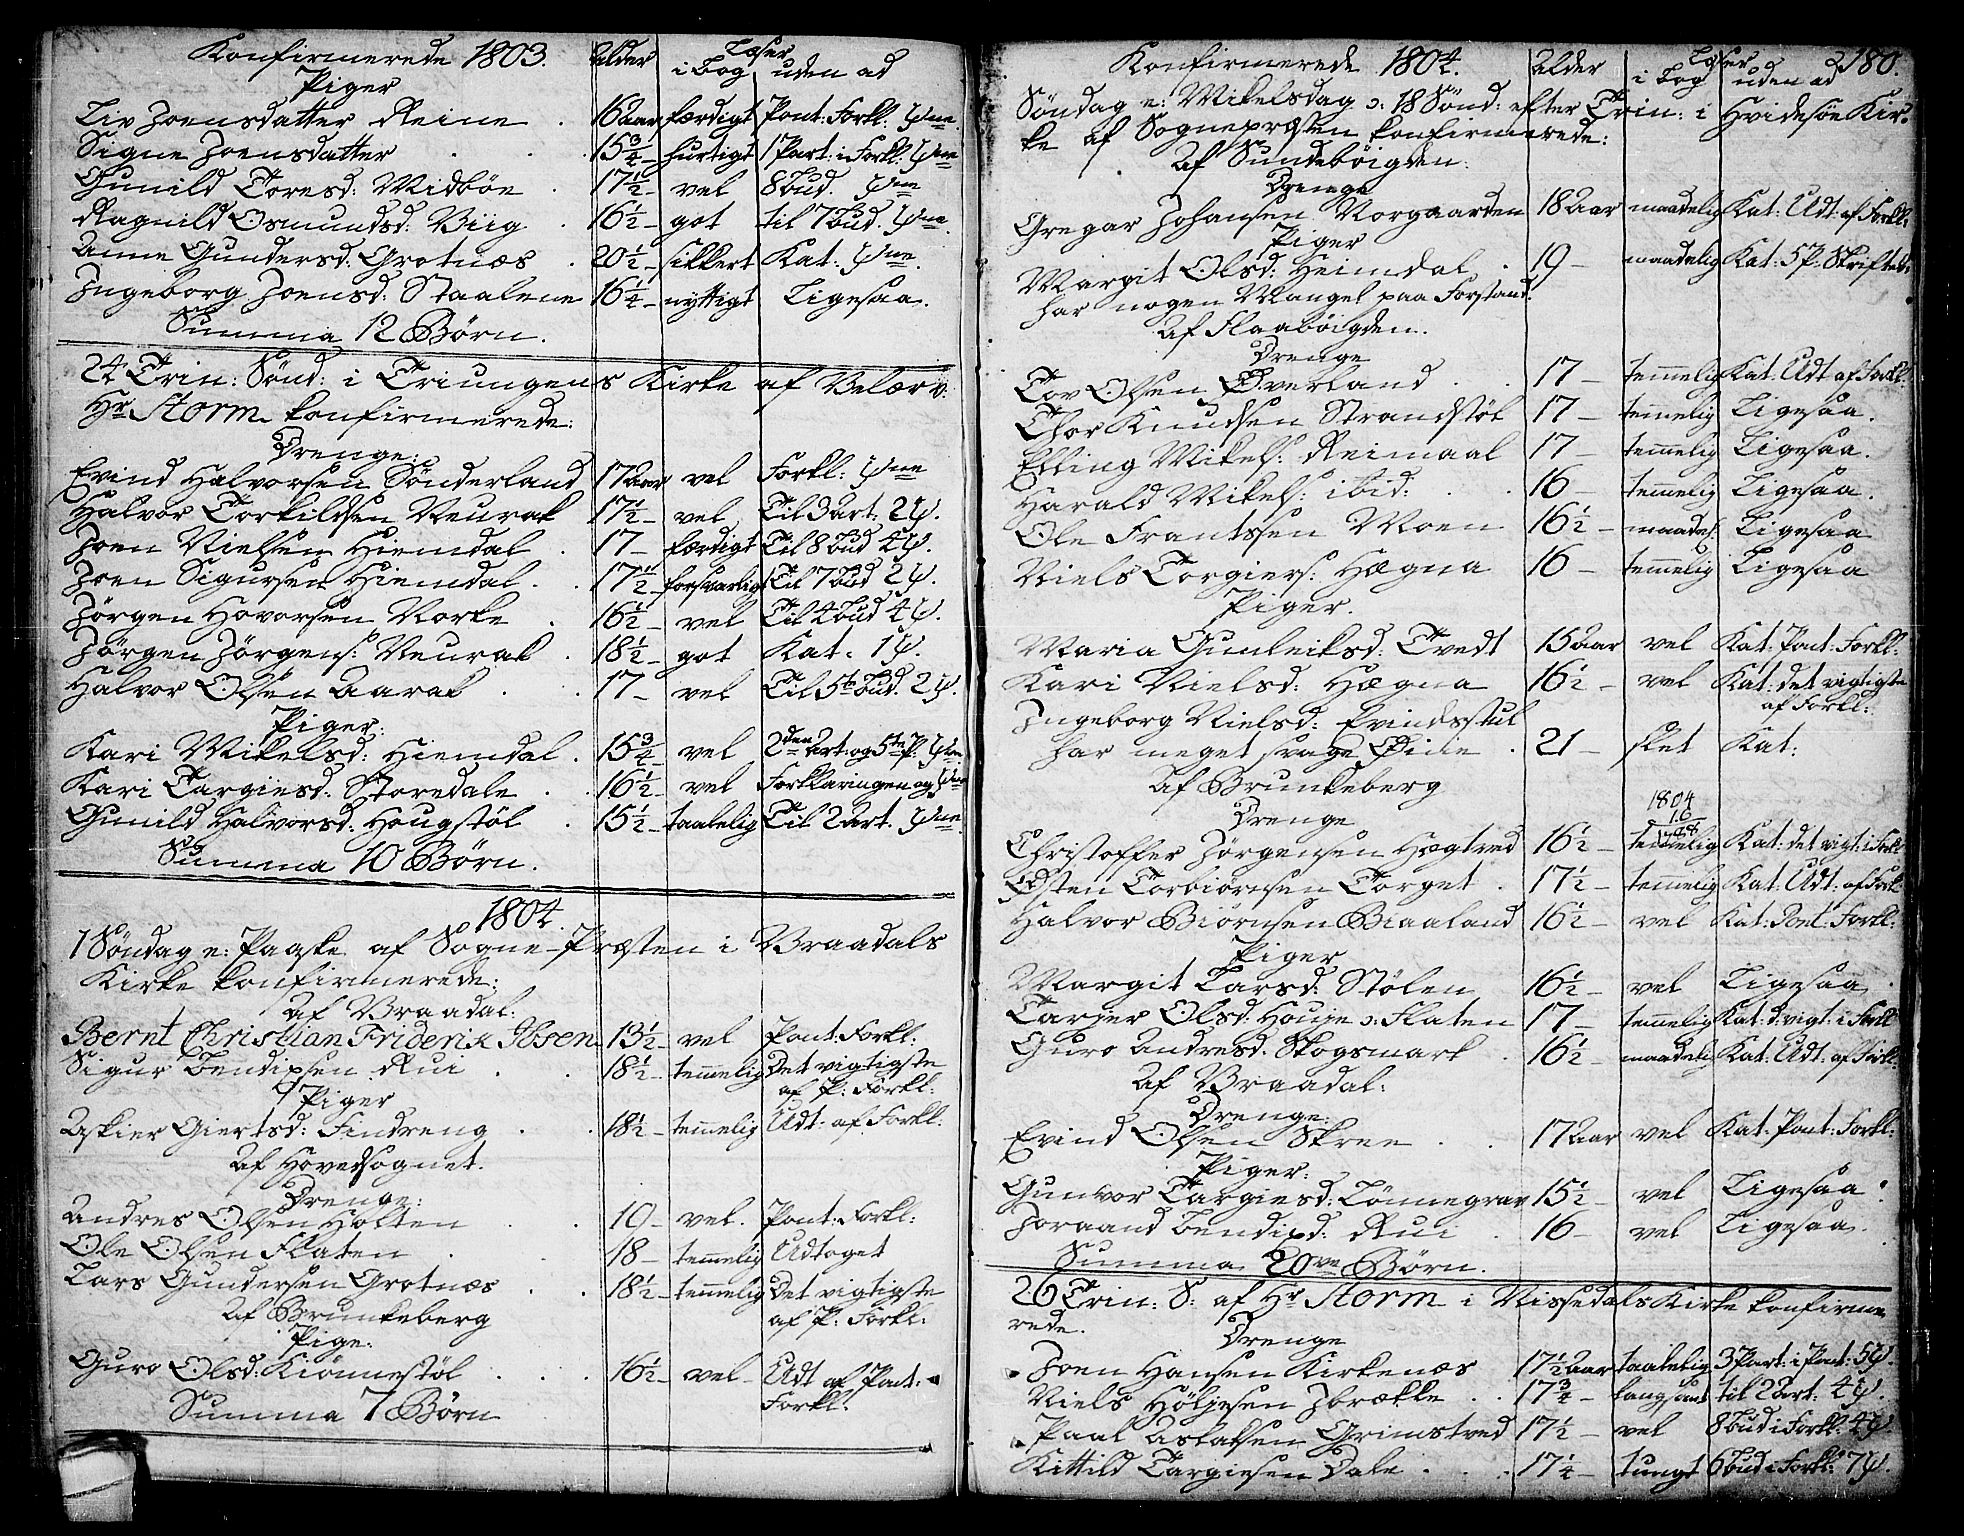 Konfirmerede 1803. Alder Læser
i Bog uden ad
Piger
Liv Joensdatter Reine . 16 Aar færdigt Pont: Forkl: ψne.
Signe Joensdatter . . . 15¾ – hurtigt 1 Part: i Forkl: ψne
Gunild Toresd: Midbøe . 17½ – vel 8 Bud. ψne
Ragnild Osmundsd: Viig . 16½ – got til 7 Bud. ψne.
Anne Gundersd: Grotnæs . 20½ – sikkert Kat: ψne.
Ingeborg Joensd: Staalene 16¼ – nyttigt Ligesaa.
Summa 12 Børn.
24 Trin: Sønd: i Triungens Kirke af Velærv:
Hr Storm konfirmerede:
Drenge:
Evind Halvorsen Sønderland 17 Aar vel Forkl: ψne
Halvor Torkildsen Neurak 17½ – vel Til 3 Art: 2 ψ.
Joen Nielsen Hiemdal . 17 – færdigt Til 8 Bud 4 ψ.
Joen Sigursen Hiemdal . . 17½ – forsvarligt Til 7 Bud 2 ψ.
Jørgen Hovorsen Norke . 16½ – vel Til 4 Bud 4 ψ.
Jørgen Jørgens: Neurak . 18½ – got Kat: 1 ψ.
Halvor Olsen Aarak . . 17 – vel Til 5te Bud. 2 ψ.
Piger:
Kari Mikelsd: Hiemdal . 15¾ – vel 2den Art: og 5te P: ψne.
Kari Targiesd: Storedale . . 16½ – vel Forklaringen og ψne
Gunild Halvorsd: Hougstøl . 15½ – taalelig Til 2 Art. ψne.
Summa 10 Børn.
1804.
1 Søndag e: Paaske af Sogne-Præsten i Vraadals
Kirke konfirmerede:
Af Vraadal:
Bernt Christian Friderik Ibsen 13½ – vel Pont: Forkl:
Sigur Bendixen Rui . . 18½ – temmelig Det vigtigste
af P: Forkl:
Piger
Askier Giertsd: Findreng . . 18½ – temmelig Udt: af Forkl:
Af Hovedsognet.
Drenge:
Andres Olsen Holten . . 19 – vel. Pont: Forkl:
Ole Olsen Flaten . . 18 – temmelig Udtoget
Lars Gundersen Grotnæs . . 18½ – temmelig Det vigtigste
af P: Forkl:
Af Brunkeberg
Pige:
Guro Olsd: Kiønnestøl . . . 16½ – vel – Udt af Pont:
Forkl:
Summa 7 Børn
Konfirmerede 1804. Alder Læser 180.
i Bog uden ad
Søndag e: Mikelsdag ɔ: 18 Sønd: efter Trin: i Hvidesøe Kir-
ke af Sognepræsten konfirmerede:
Af Sundebøigden.
Drenge
Gregar Johansen Norgaarden 18 Aar maadelig Kat: Udt: af Forkl:
Piger
Margit Olsd: Heimdal . 19 – maadelig Kat: 5 P: Skriftel:
har nogen Mangel paa Forstand.
Af Flaabøigden.
Drenge
Tov Olsen Øverland . . 17 – temmelig Kat: Udt af Forkl:
Thor Knudsen Strandstøl 17 – temmelig Ligesaa.
Elling Mikels: Reimaal 17 – temmelig Ligesaa.
Harald Mikels: ibid: . . 16 – temmelig Ligesaa.
Ole Frantsen Moen 16½ – maadel. Ligesaa
Niels Torgiers: Hægna 16 – temmelig Ligesaa
Piger.
Maria Gunleiksd: Tvedt 15 Aar vel Kat: Pont: Forkl:
Kari Nielsd: Hægna 16½ – vel Kat: det vigtigste
af Forkl:
Ingeborg Nielsd: Evindsstul
har meget svage Øine . 21 – slet Kat:
Af Brunkeberg
Drenge 1804
16
1788
Christoffer Jørgensen Hægtved 16½ – temmelig Kat: det vigt: i Forkl
Østen Torbiørnsen Torget . 17½ – temmelig Kat: Udt: af Forkl
Halvor Biørnsen Biaaland 16½ – vel Kat: Pont: Forkl:
Piger
Margit Larsd: Stølen 16½ – vel Ligesaa .
Tarjer Olsd: Houje ɔ: Flaten 17 – temmelig Kat: d. vigt: i Forkl
Guro Andresd: Skogsmark . 16½ maadelig Kat: Udt: af Forkl:
Af Vraadal:
Drenge:
Evind Olsen Skree . . 17 Aar vel Kat: Pont: Forkl:
Piger:
Gunvor Targiesd: Lønnegrav 15½ – vel Ligesaa.
Joraand Bendixd: Rui . 16 – vel Ligesaa.
Summa 20ve Børn.
26 Trin: S: af Hr Storm i Nissedals Kirke konfirme
rede. Drenge
Joen Hansen Kirkenæs 17½ Aar taalelig 3 Part: i Pont: 5 ψ.
Niels Høljesen Jbrække . . 17¾ – langsomt til 2 Art: 4 ψ.
Paal Aslaksen Grimstved 17½ – vel 8 Bud i Forkl: 4 ψ.
Kittild Targiesen Dale . . . 17¼ – tungt 6 Bud i Forkl: 7 ψ.